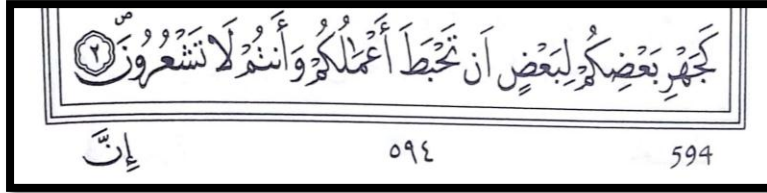 كَجَهْرِ بَعْضِكُمْ لِبَعْضٍ اَن تَحْبَطَ أَعْمَٰلُكُمْ وَأَنتُمْ لَا تَشْعُرُونَۖ ٢
594 ٥٩٤ إِنَّ